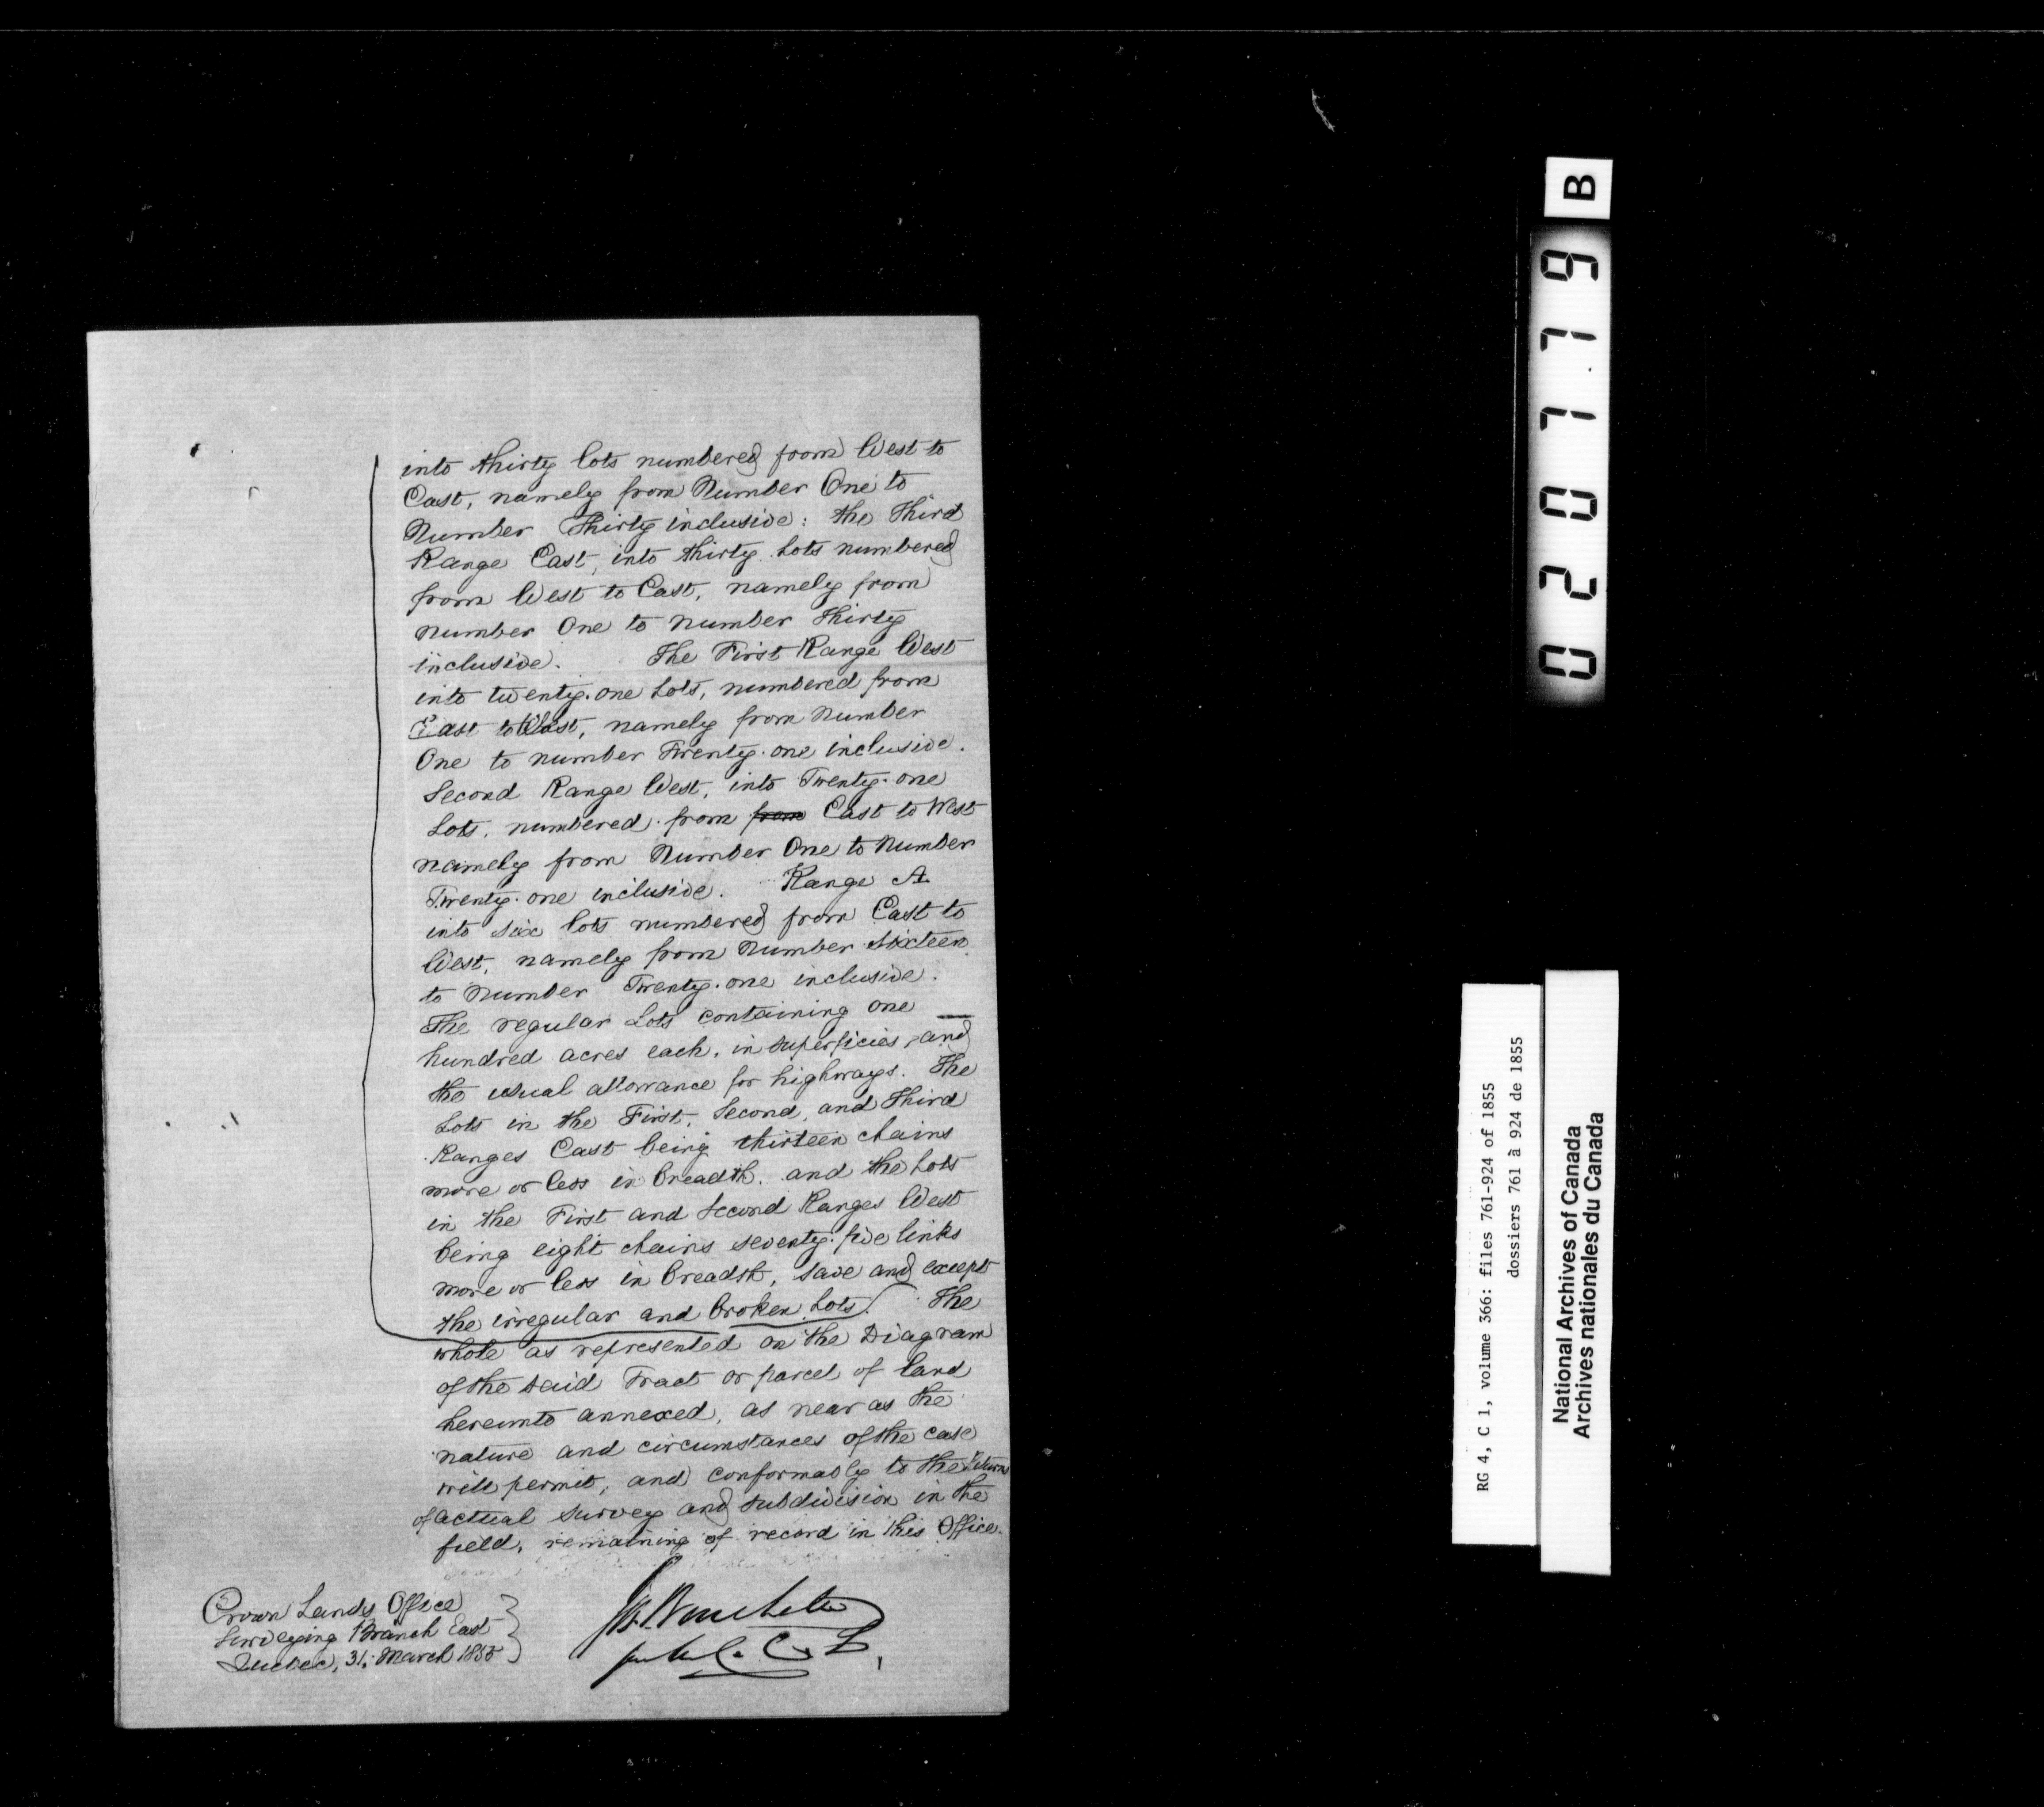 into thirty lots numbered from West to
East, namely from Number One to
Number Thirty inclusive: the Third
Range East, into thirty Lots numbered
from West to East, namely from
number One to number Thirty
inclusive. The First Range West
into twenty-one Lots, numbered from
East to West, namely from Number
One to number Twenty-one inclusive.
Second Range West, into Twenty-one
Lots, numbered from from East to West
namely from Number One to Number
Twenty-one inclusive. Range A.
into six lots numbered from East to
West, namely from Number Sixteen
to Number Twenty-one inclusive.
The regular Lots containing one
hundred acres each, in superficies, and
the usual allowance for highways. The
Lots in the First, Second, and Third
Ranges East being thirteen chains
more or less in breadth, and the Lots
in the First and Second Ranges West
being eight chains seventy-five links
more or less in breadth, save and except
the irregular and broken Lots. The
whole as represented on the Diagram
of the said Tract or parcel of land
hereunto annexed, as near as the
nature and circumstances of the case
will permit, and conformably to the Return
of actual survey and subdivision in the
field, remaining of record in this Office.
Crown Lands Office
Surveying Branch East
Quebec, 31. March 1855
Jos. Bouchette
C. L.
B
020779
RG 4, C 1, volume 366: files 761-924 of 1855
dossiers 761 à 924 de 1855
National Archives of Canada
Archives nationales du Canada